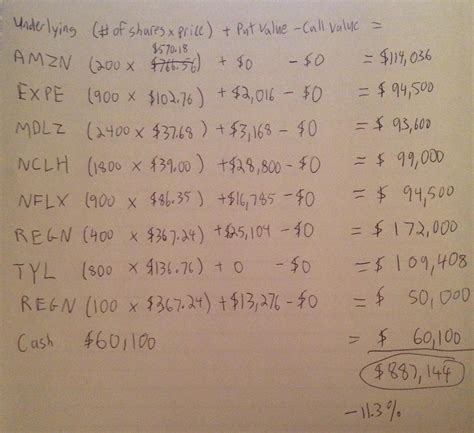 Underlying (# of shares x price) + Put Value - Call Value =
$570.18
AMZN (200 x $766.56) + $0 - $0 = $114,036
EXPE (900 x $102.76) + $2,016 - $0 = $94,500
MDLZ (2400 x $37.68) + $3,168 - $0 = $93,600
NCLH (1800 x $39.00) + $28,800 - $0 = $99,000
NFLX (900 x $86.35) + $16,785 - $0 = $94,500
REGN (400 x $367.24) + $25,104 - $0 = $172,000
TYL (800 x $136.76) + 0 - $0 = $109,408
REGN (100 x $367.24) + $13,276 - $0 = $50,000
Cash $60,100 = $60,100
$887,144
-11.3%